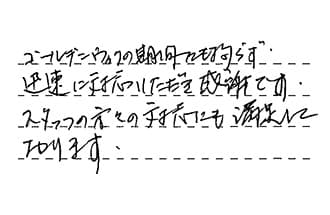 ゴールデンウィークの期間にも拘らず、
迅速に対応いただき感謝です。
スタッフの方々の対応にも満足して
おります。